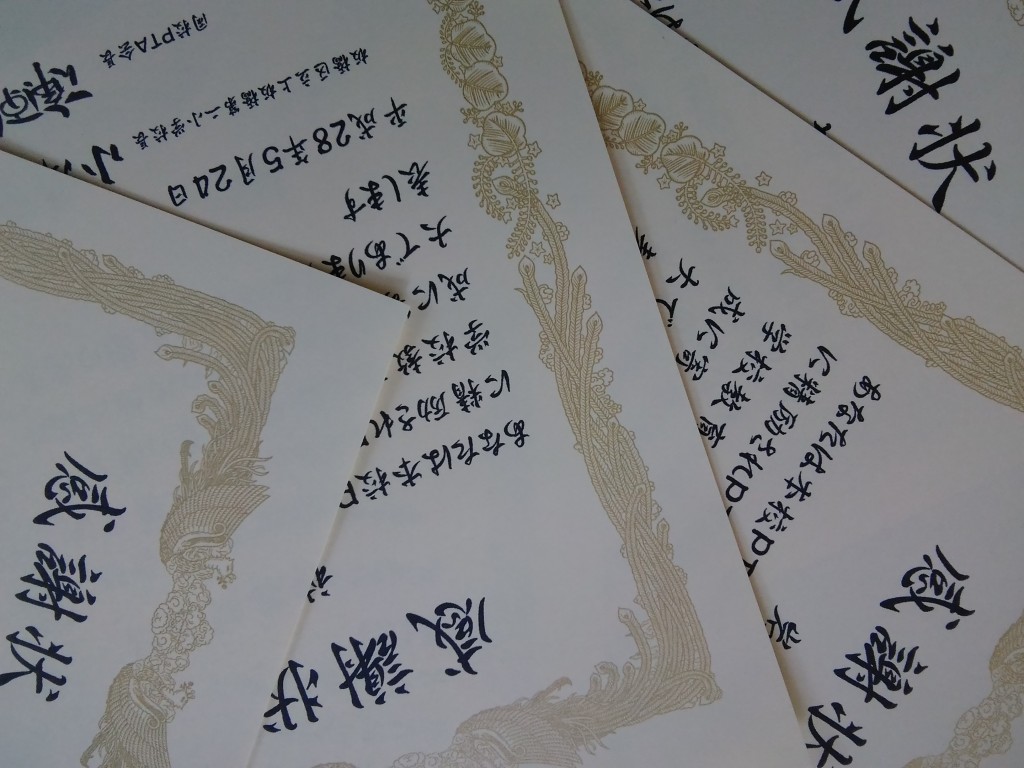 感謝状
感謝状
あなたは本校P
に精励され
学校教
成に
大であり
表します
平成28年5月24日
板橋区立上板橋第二小学校長
同校PTA会長
感謝状
あなたは本校P
に精励されP
学校教育
成に寄
大で
謝状